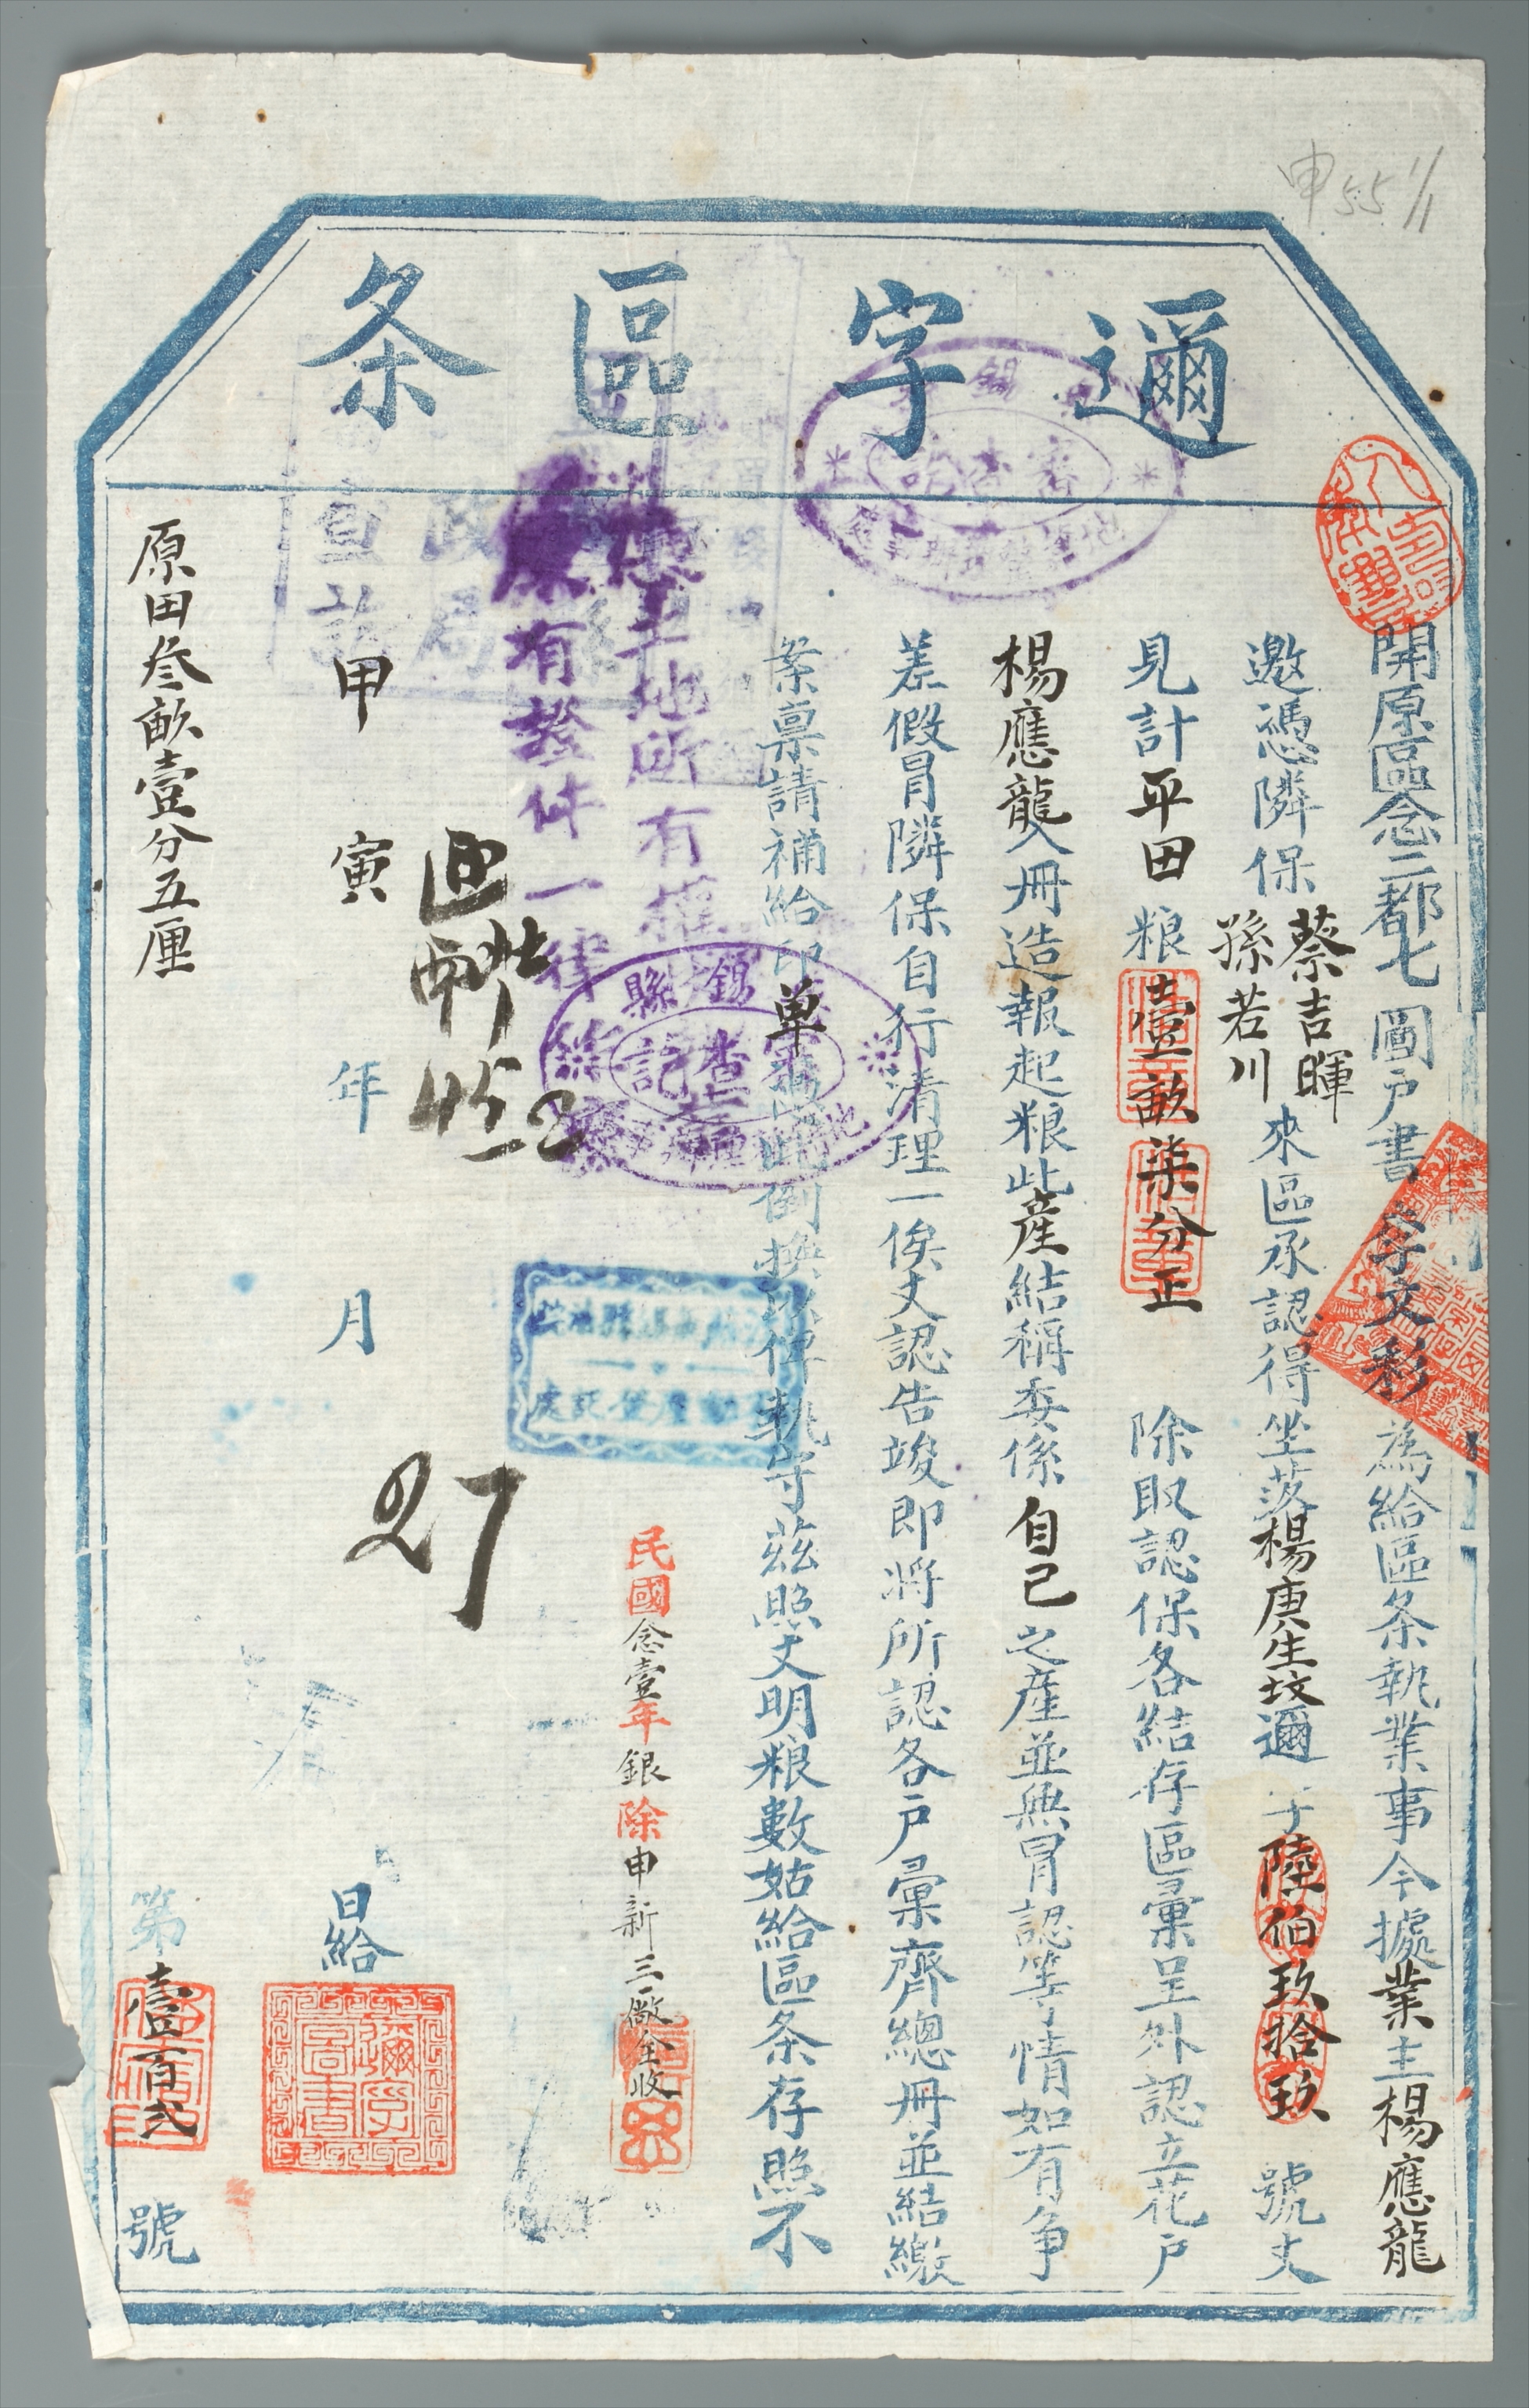 申55 1/1
邇字區条
開原區念三都七圖戶書字文彩為給區条執業事今據業主楊應龍
邀憑隣保蔡吉暉孫若川來區承認得坐落楊庚生坟邇字陸伯玖拾玖號丈
見計平田粮壹畝柒分正除取認保各結存區彙呈外認立花戶
楊應龍入冊造報起粮此產結稱委係自己之產並無冒認等情如有争
差假冒隣保自行清理一俟丈認告竣即將所認各戶彙齊總冊並結繳
案禀請補給印单為此倒換以俾執守茲照丈明粮數姑給區条存照不
土地所有權
有證件一律
錫縣
審查記
民國念壹年銀除申新三厰全收
27
甲寅年月日給
邇字
圖書
原田叄畝壹分五厘
第壹百弍號